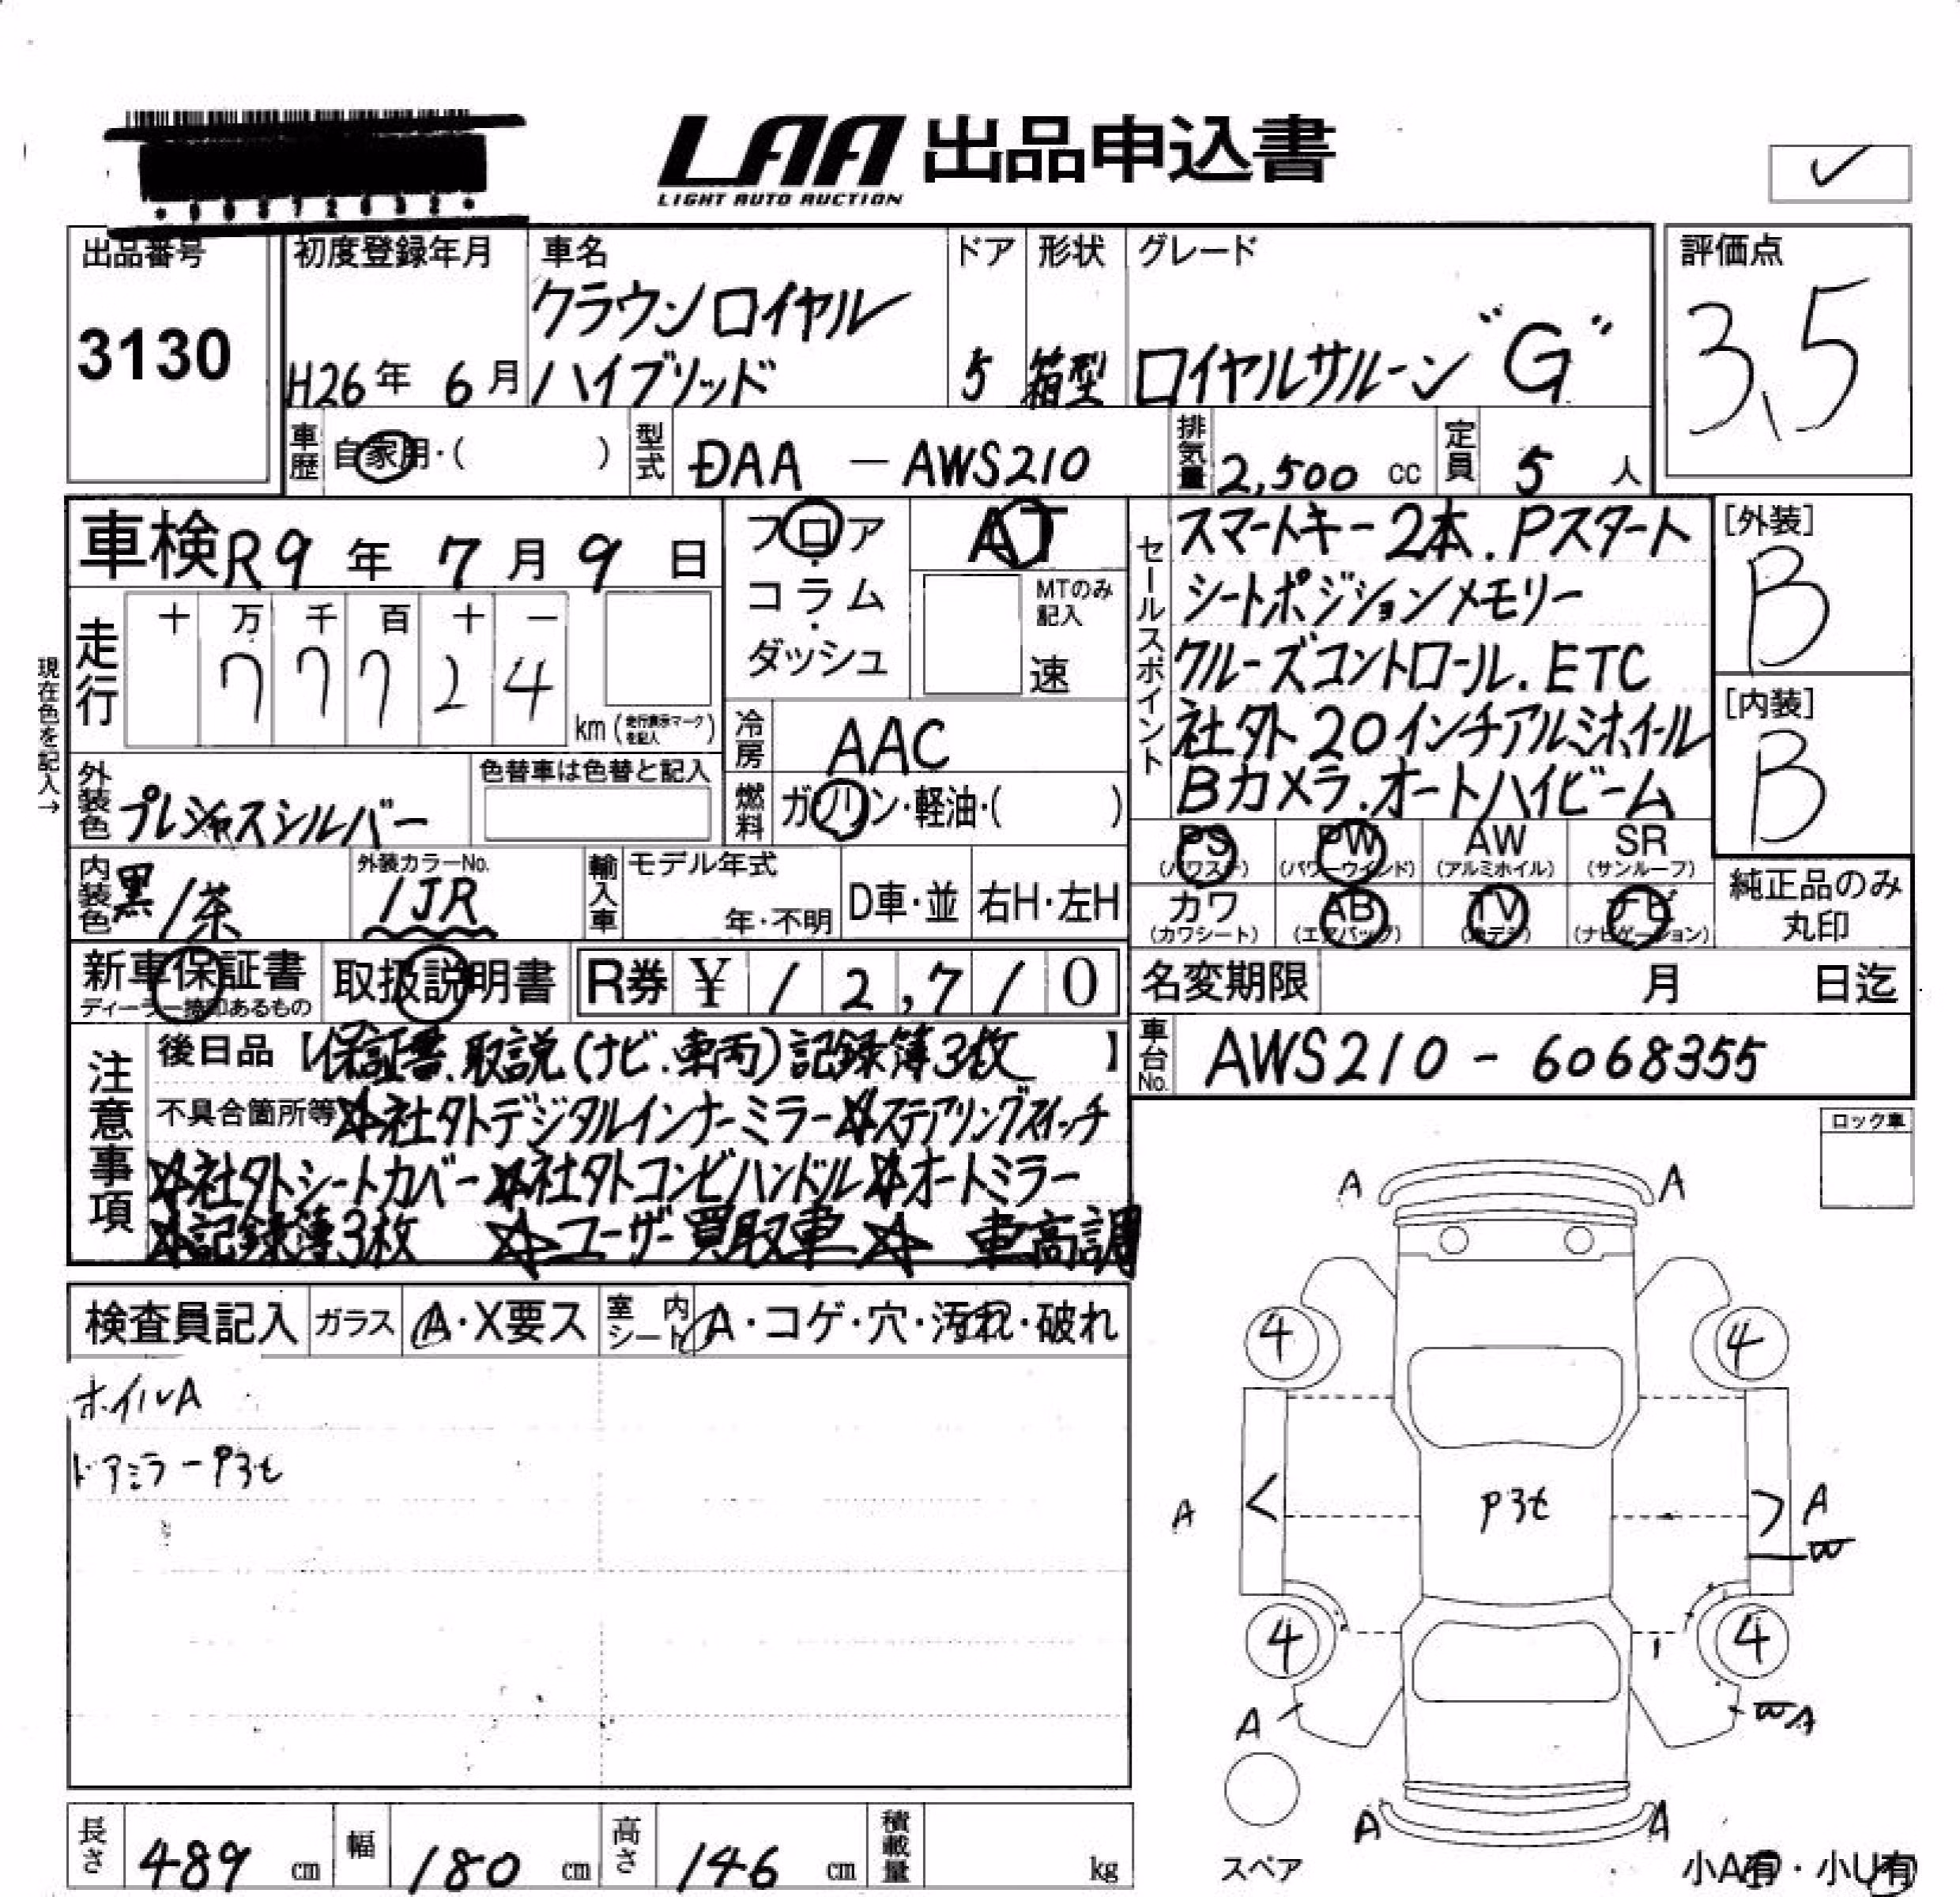 LAA 出品申込書
LIGHT AUTO AUCTION
✓
出品番号
3130
初度登録年月
H26年 6月
車名
クラウンロイヤル
ハイブリッド
ドア
5
形状
箱型
グレード
ロイヤルサルーン"G"
評価点
3.5
車歴 自家用・( )
型式 DAA - AWS210
排気量 2,500 cc
定員 5 人
車検 R9年 7月 9日
フロア
コラム
ダッシュ
AT
MTのみ
記入
速
セールスポイント
スマートキー2本.Pスタート
シートポジションメモリー
クルーズコントロール.ETC
社外20インチアルミホイール
Bカメラ.オートハイビーム
[外装]
B
[内装]
B
現在色を記入→
走行
十 万 千 百 十 一
7 7 7 2 4
km (走行表示マークを記入)
冷房 AAC
燃料 ガソリン・軽油・( )
外装色 プレシャスシルバー
色替車は色替と記入
内装色 黒/茶
外装カラーNo.
1JR
輸入車
モデル年式
年・不明
D車・並
右H・左H
PS (パワステ)
PW (パワーウインド)
AW (アルミホイル)
SR (サンルーフ)
カワ (カワシート)
AB (エアバッグ)
TV (カテレ)
ナビ (ナビゲーション)
純正品のみ
丸印
新車保証書
ディーラー捺印あるもの
取扱説明書
R券 ¥ 12,710
名変期限 月 日迄
車台No. AWS210-6068355
注意事項
後日品【保証書.取説(ナビ.車両)記録簿3枚】
不具合箇所等☆社外デジタルインナーミラー☆ステアリングスイッチ
☆社外シートカバー☆社外コンビハンドル☆オートミラー
☆記録簿3枚 ☆ユーザー買取車☆ 車高調
ロック車
検査員記入 ガラス A・X要ス 室内シート A・コゲ・穴・汚れ・破れ
ホイルA
ドアミラーP3t
A A
4 4
A P3t A
W
4 4
A WA
A A
スペア
小A有・小U有
長さ 489 cm 幅 180 cm 高さ 146 cm 積載量 kg